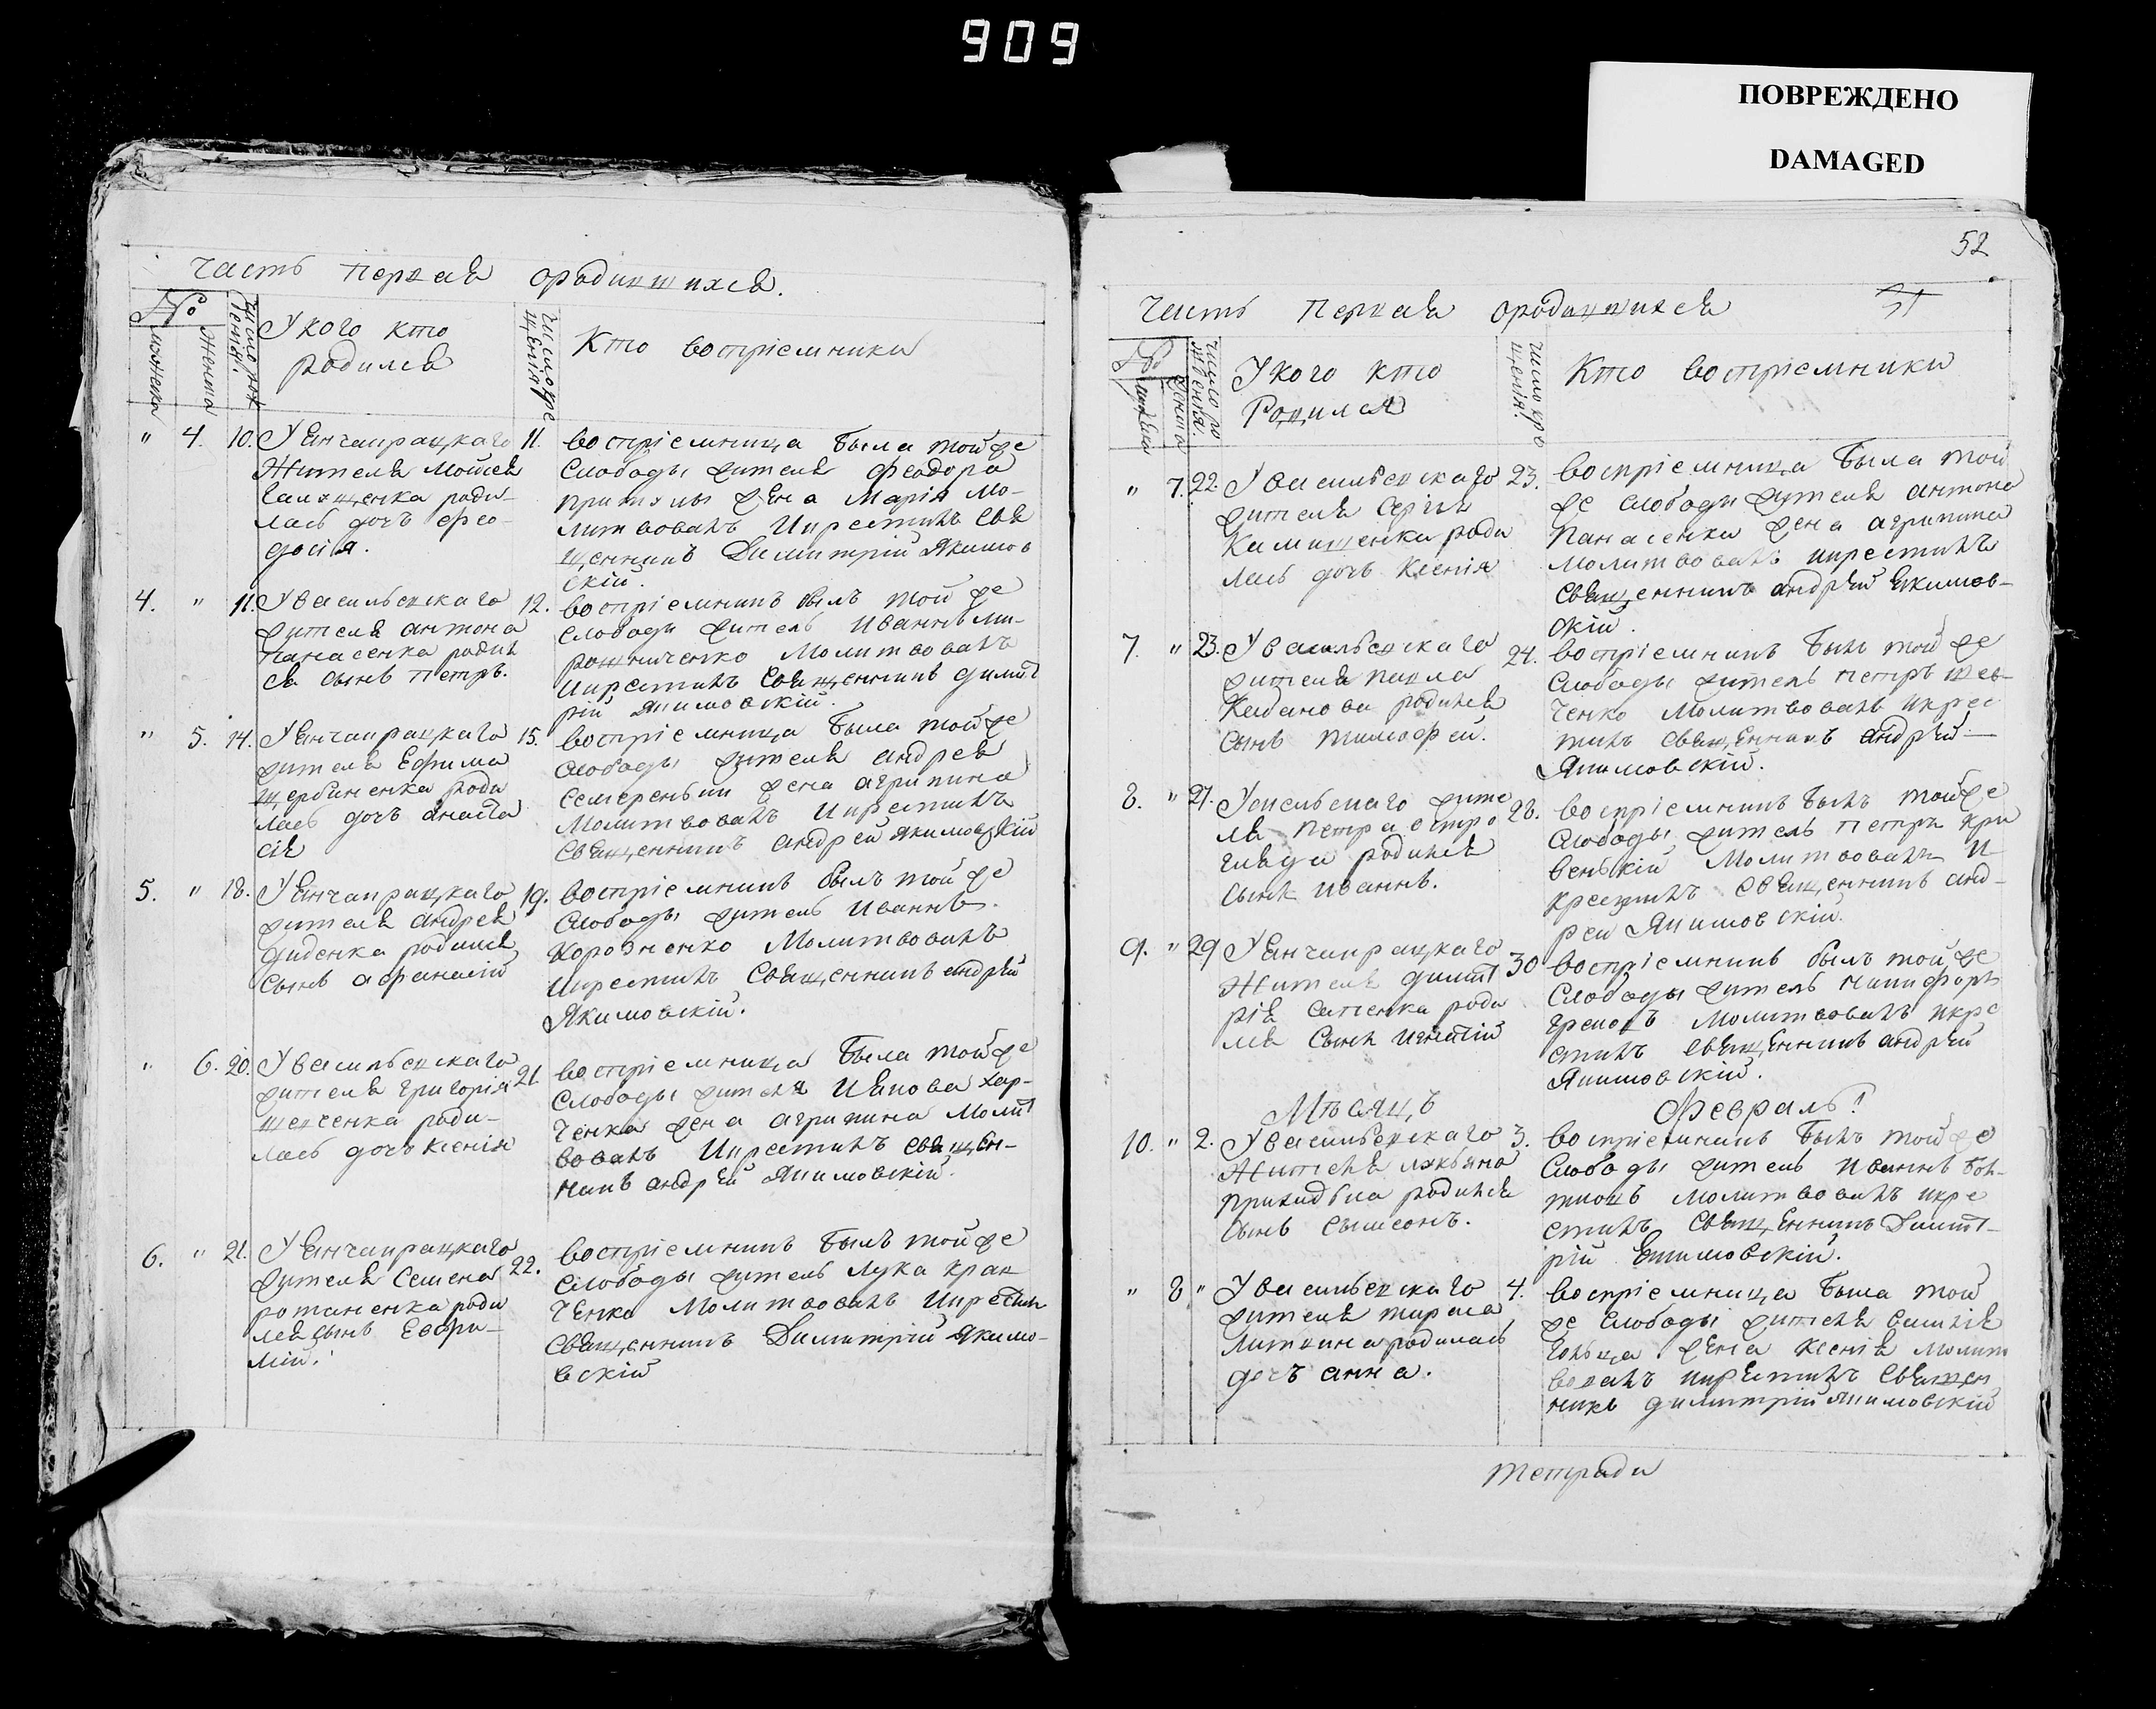 909
ПОВРЕЖДЕНО
DAMAGED
Часть Первая ородившихся.
№
мужеска
женска
Число рождения.
У кого кто
родился
Число крещения
Кто восприемники
" 4. 10. У Янчакрацкаго 11.
Жителя Мойсея
роди-
лась дочь Фео-
досія.
восприемница была той же
Слободы жителя Феодора
Притулы жена Марія Мо-
литвовалъ и крестилъ свя
щенникъ Димитрій Якимов
скій.
4. " 11. У васильевскаго 12.
жителя антона
панасенка родил
ся сынъ Петръ.
восприемникъ былъ той же
слободы житель Иваннъ Ми-
рошниченко Молитвовалъ
и крестилъ Священникъ димит
рій Якимовскій.
" 5. 14. У Янчакрацкаго 15.
жителя Ефима
щербиненка роди
лась дочь анаста
сія
восприемница была той же
слободы жителя андрея
Семереньки жена агрипина
Молитвовалъ и крестилъ
Священникъ андрей Якимовскій
5. " 18. У Янчакрацкаго 19.
жителя андрея
диденка родился
Сынъ афанасій
восприемникъ былъ той же
слободы житель Иваннъ
Молитвовалъ
и крестилъ Священникъ андрей
Якимовскій.
" 6. 20. У васильевскаго 21
жителя григорія
шевченка роди-
лась дочь ксенія
восприемница была той же
Слободы жителя Иякова хар-
ченка жена агрипина Молит
вовалъ и крестилъ священ-
никъ андрей Якимовскій.
6. " 21. У Янчакрацкаго 22.
жителя Семена
романенка роди
лся сынъ Евфи-
мій.
восприемникъ былъ той же
слободы житель Лука Крав
ченко Молитвовалъ и крестилъ
Священникъ Димитрій Якимо-
вскій
52
Часть Первая ородившихся
51
№
мужеска
женска
число рождения.
У кого кто
Родился
число крещения
Кто восприемники
" 7. 22. У васильевскаго 23.
жителя Сергея
роди
лась дочь Ксенія
восприемница была той
же слободы жителя антона
Панасенка жена агрипина
молитвовалъ и крестилъ
священникъ андрей Якимов-
скій.
7. " 23. У васильевскаго 24.
жителя павла
Кабанова родился
Сынъ тимофей.
восприемникъ былъ той же
Слободы житель петръ шев-
ченко молитвовалъ и крес
тилъ священникъ андрей
Якимовскій.
8. " 27. жите 28.
ля Петра
родился
сынъ иваннъ.
восприемникъ былъ той же
Слободы житель петръ кри
венькій Молитвовалъ и
крестилъ священникъ анд-
рей Якимовскій.
9. " 29 У Янчакрацкаго 30
Жителя димит
рія сапенка роди
лся сынъ игнатій
восприемникъ былъ той же
Слободы житель никифоръ
молитвовалъ и кре
стилъ священникъ андрей
Якимовскій.
Мѣсяцъ Февраль!
10. " 2. У васильевскаго 3.
Жителя лукьяна
приходька родился
сынъ сымеонъ.
восприемникъ былъ той же
Слободы житель иваннъ
молитвовалъ и кре
стилъ Священникъ Димит-
рій Якимовскій.
" 8 " У васильевскаго 4.
жителя тараса
литвина родилась
дочь анна.
восприемница была той
же слободы жителя
жена ксенія молит
вовалъ и крестилъ священ
никъ димитрій Якимовскій
тетради